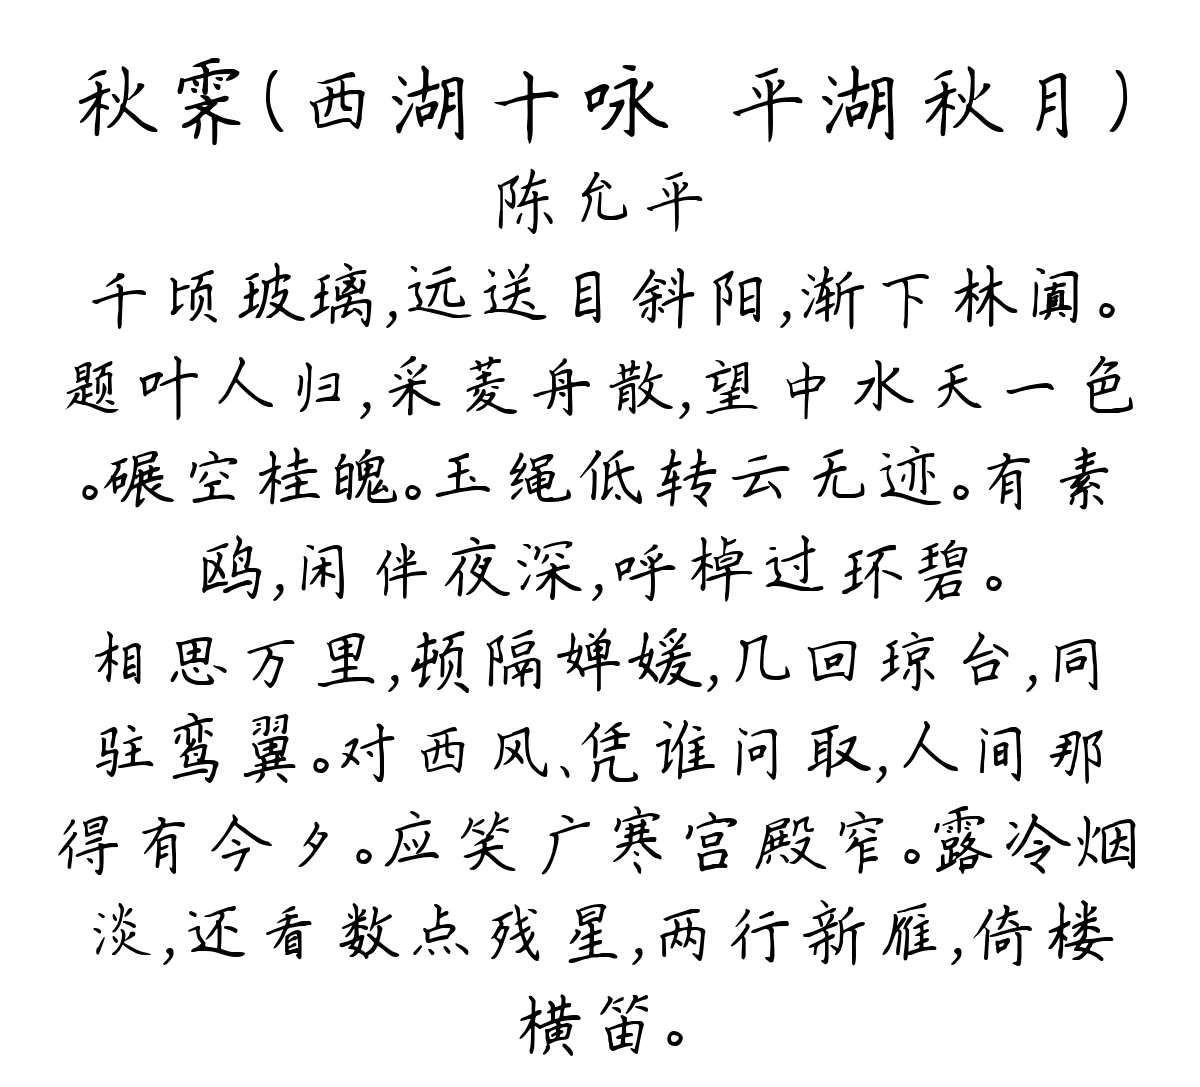 秋霁(西湖十咏 平湖秋月)
陈允平
千顷玻璃,远送目斜阳,渐下林阗。
题叶人归,采菱舟散,望中水天一色
。碾空桂魄。玉绳低转云无迹。有素
鸥,闲伴夜深,呼棹过环碧。
相思万里,顿隔婵媛,几回琼台,同
驻鸾翼。对西风、凭谁问取,人间那
得有今夕。应笑广寒宫殿窄。露冷烟
淡,还看数点残星,两行新雁,倚楼
横笛。